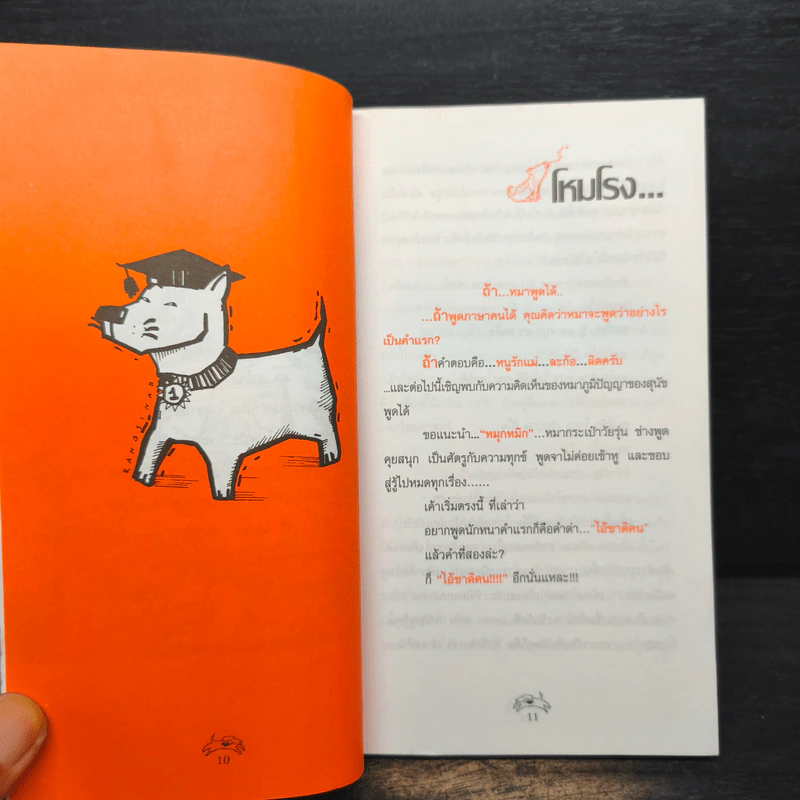 1
RANOTINAO
10
โหมโรง...
ถ้า...หมาพูดได้..
...ถ้าพูดภาษาคนได้ คุณคิดว่าหมาจะพูดว่าอย่างไร
เป็นคำแรก?
ถ้าคำตอบคือ...หนูรักแม่...ละก้อ...ผิดครับ
...และต่อไปนี้เชิญพบกับความคิดเห็นของหมาภูมิปัญญาของสุนัข
พูดได้
ขอแนะนำ..."หมุกหมิก"...หมากระเป๋าวัยรุ่น ช่างพูด
คุยสนุก เป็นศัตรูกับความทุกข์ พูดจาไม่ค่อยเข้าหู และชอบ
สู่รู้ไปหมดทุกเรื่อง......
เค้าเริ่มตรงนี้ ที่เล่าว่า
อยากพูดนักหนาคำแรกก็คือคำด่า..."ไอ้ชาติคน"
แล้วคำที่สองล่ะ?
ก็ "ไอ้ชาติคน!!!!" อีกนั่นแหละ!!!
11